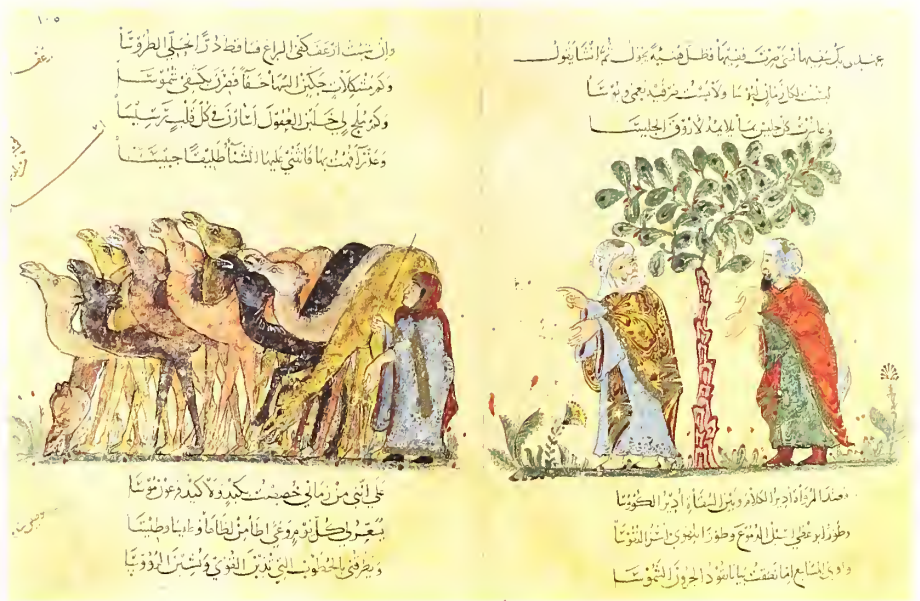 ثم انشا يقول
لبست لكل زمان لبوسا ولابست صرفيه نعمى وبوسا
وعاشرت كل جليس بما يلايمه لأروق الجليسا
فعند الرواة أدير الكلام وبين السقاة أدير الكووسا
وطورا بوعظي اسيل الدموع وطورا بلهوي اسر النفوسا
واقري المسامع إما نطقت بيانا يقود الحرون الشموسا
١٠٥
وإن شئت ارعف كفى اليراع فساقط درا يحلي الطروسا
وكم مشكلات حكين السها خفاء فصرن بكشفى شموسا
وكم ملح لي خلبن العقول أسارن في كل قلب رسيسا
وعذراء فهت بها فانثنى عليها الثناء طليقا حبيسا
على انني من زماني خصصت بكيد ولا كيد فرعون موسا
يسعر لي كل يوم وغى اطا من لظاها وطيسا وطيسا
ويطرقني بالخطوب التي يذبن القوى ويشبن الرووسا